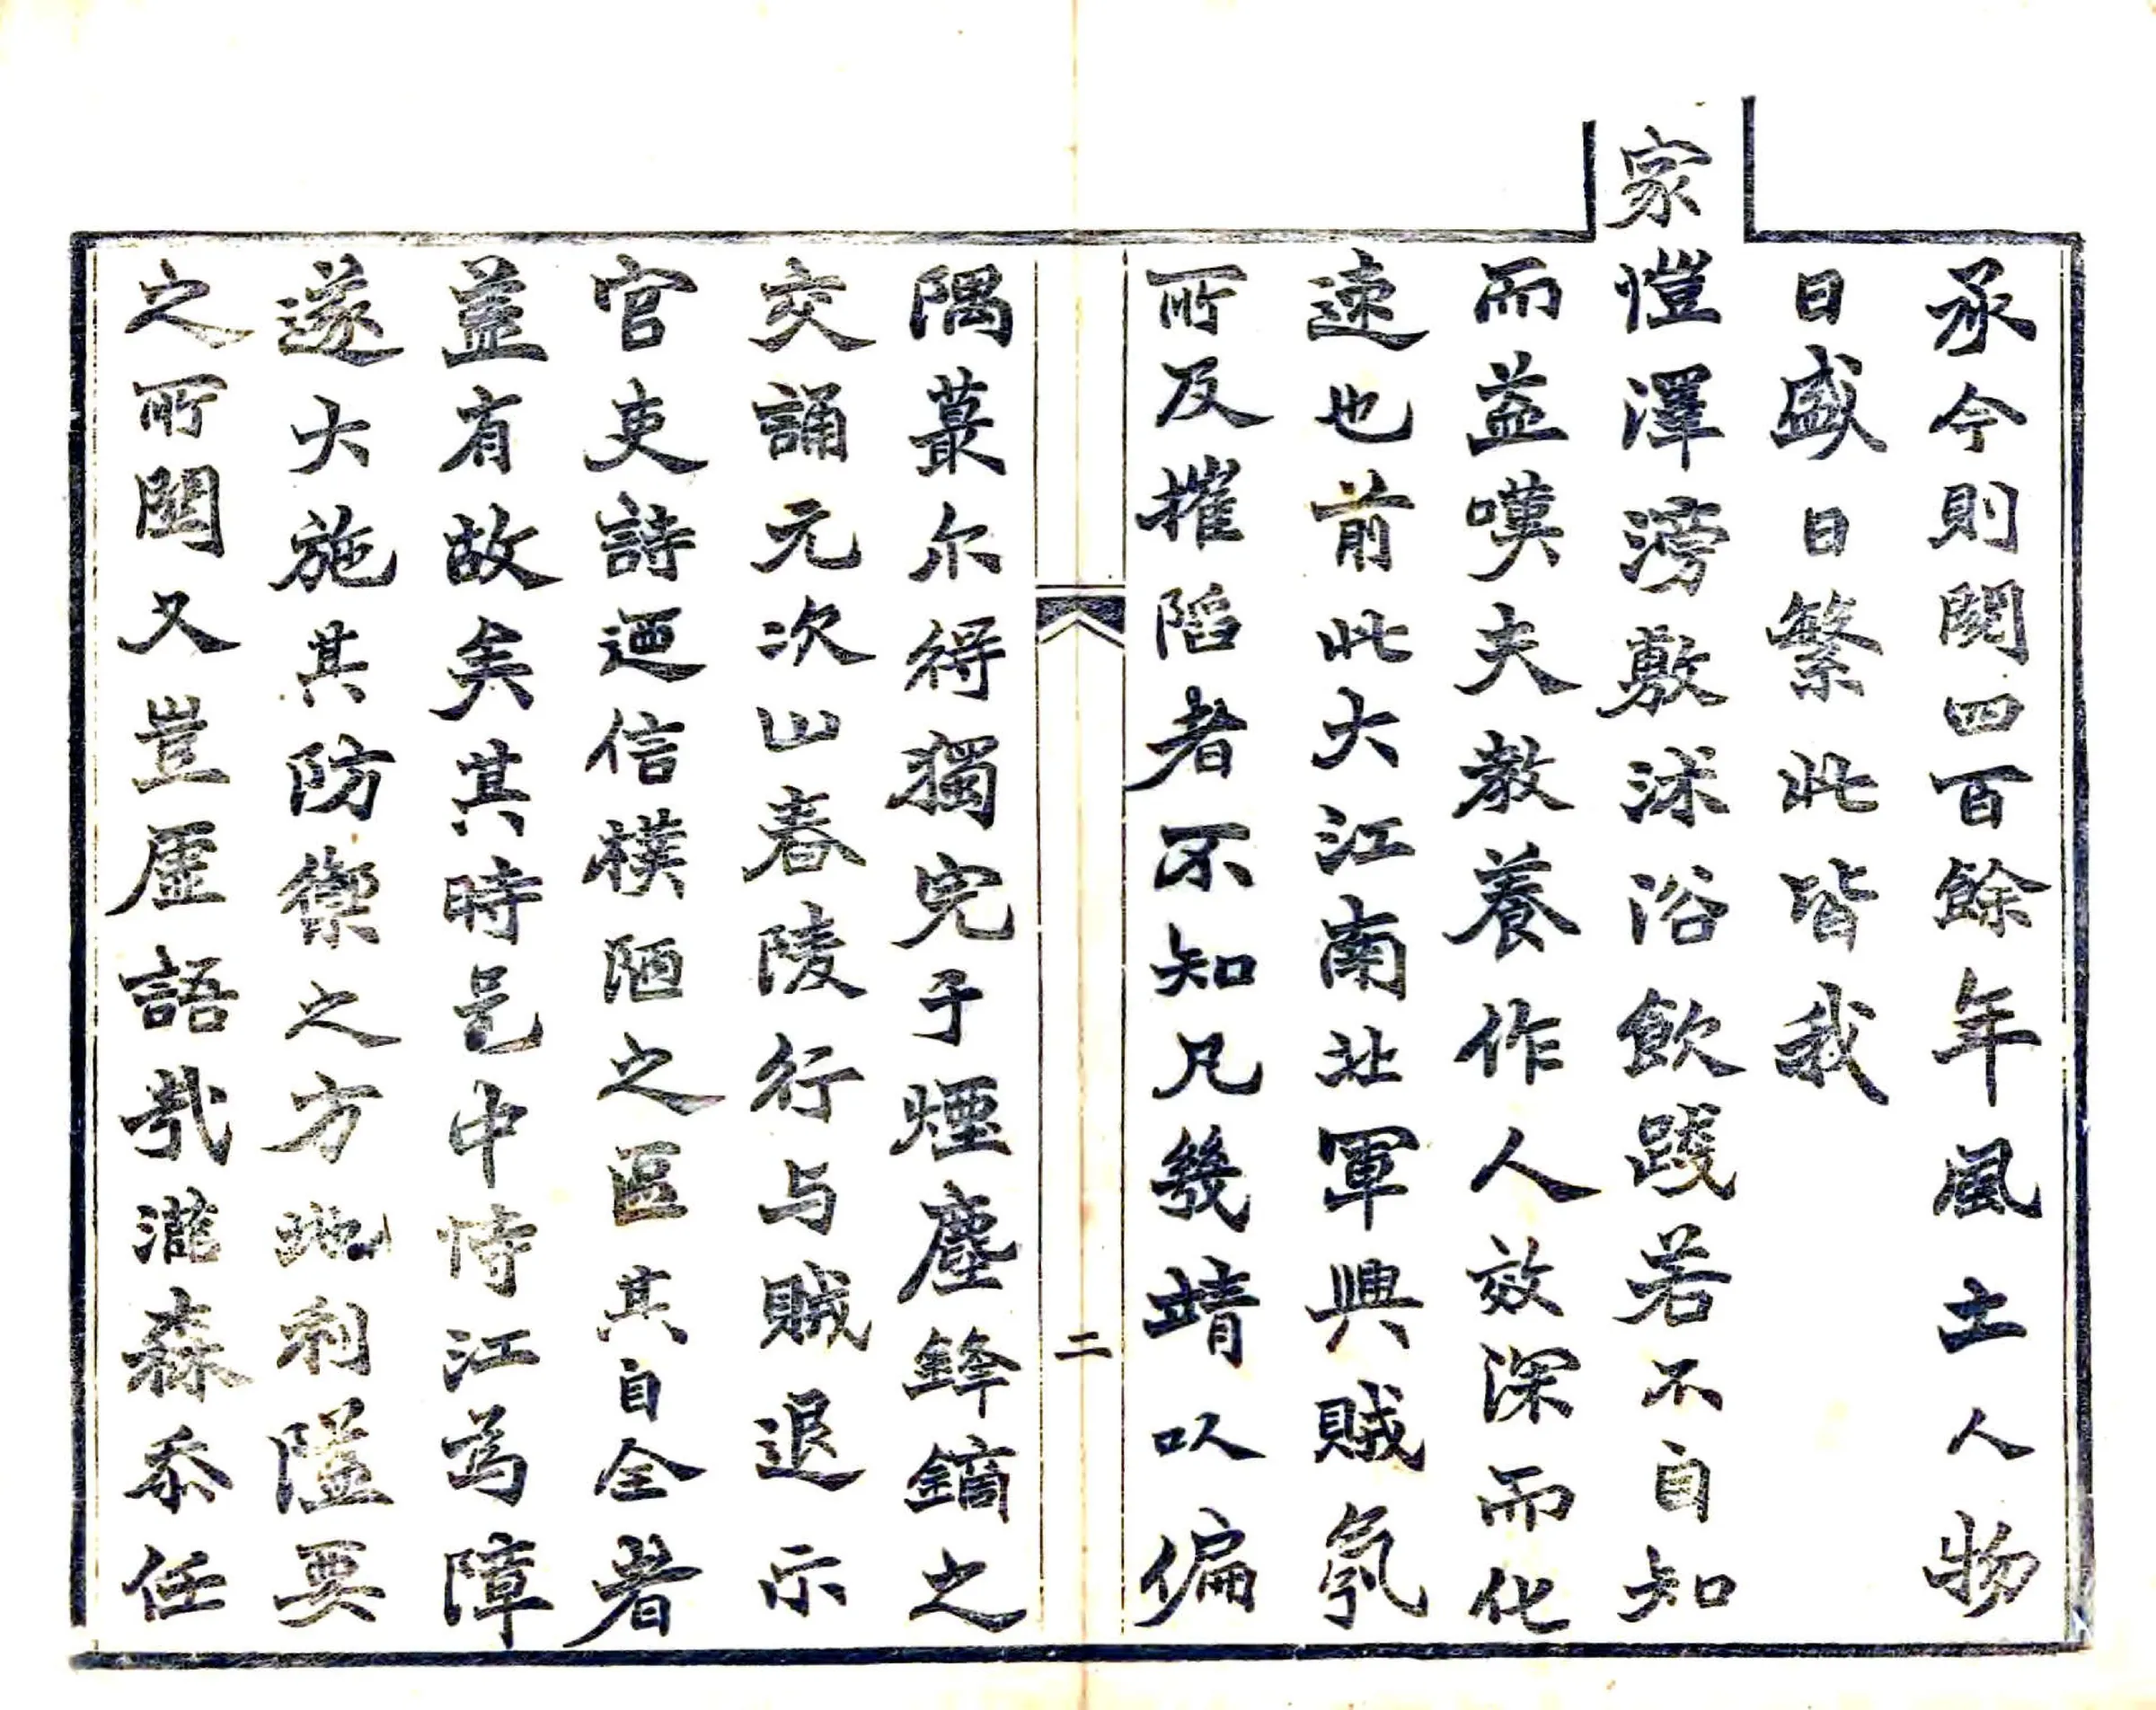 承今則閱四百餘年風土人物
日盛日繁此皆我
家愷澤滂敷沭浴飲踐若不自知
而益嘆夫教養作人效深而化
速也前此大江南北軍興賊氛
所及摧陷者不知凡幾靖以偏
隅蕞尔得獨完于煙塵鋒鏑之
交誦元次山舂陵行与賊退示
官吏詩迺信樸陋之區其自全者
蓋有故矣其時邑中恃江為障
遂大施其防禦之方地利隘要
之所關又豈虛語哉瀧森忝任
二